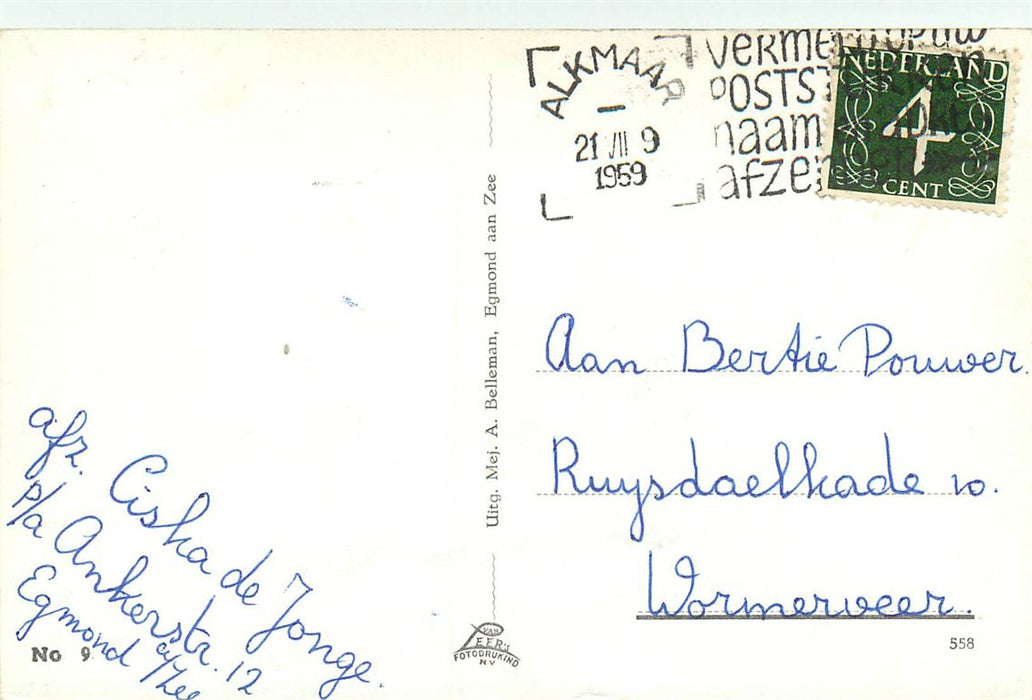 ALKMAAR
21 VII 9
1959
VERMELD OP UW
POSTST
naam
afzen
NEDERLAND
4
CENT
Aan Bertie Pouwer.
Ruysdaelkade 10.
Wormerveer.
afz. Ciska de Jonge.
p/a Ankerstr. 12
Egmond a/Zee
Uitg. Mej. A. Belleman, Egmond aan Zee
No 9
VAN
LEER'S
FOTODRUKIND
NV
558